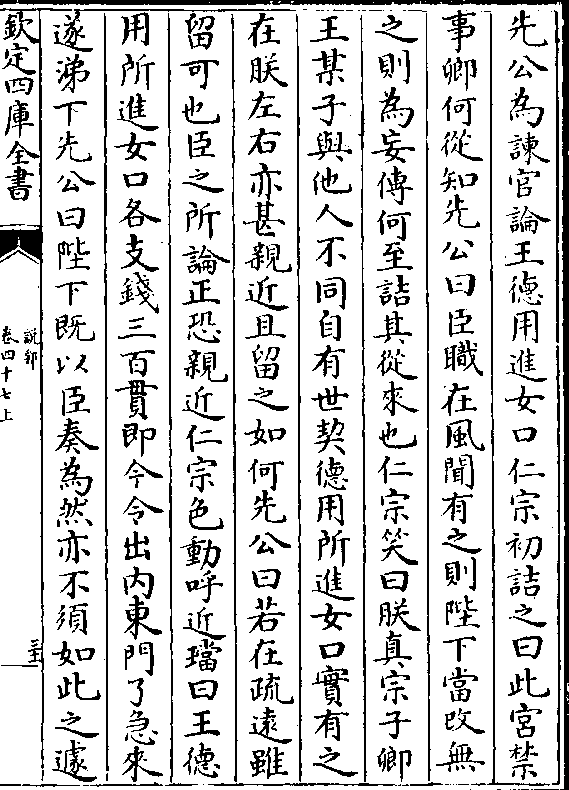 先公為諫官論王德用進女口仁宗初詰之曰此宮禁
事卿何從知先公曰臣職在風聞有之則陛下當改無
之則為妄傳何至詰其從來也仁宗笑曰朕真宗子卿
王某子與他人不同自有世契德用所進女口實有之
在朕左右亦甚親近且留之如何先公曰若在疏遠雖
留可也臣之所論正恐親近仁宗色動呼近璫曰王德
用所進女口各支錢三百貫即今令出内東門了急來
遂涕下先公曰陛下既以臣奏為然亦不須如此之遽
欽定四庫全書
說郛
卷四十七上